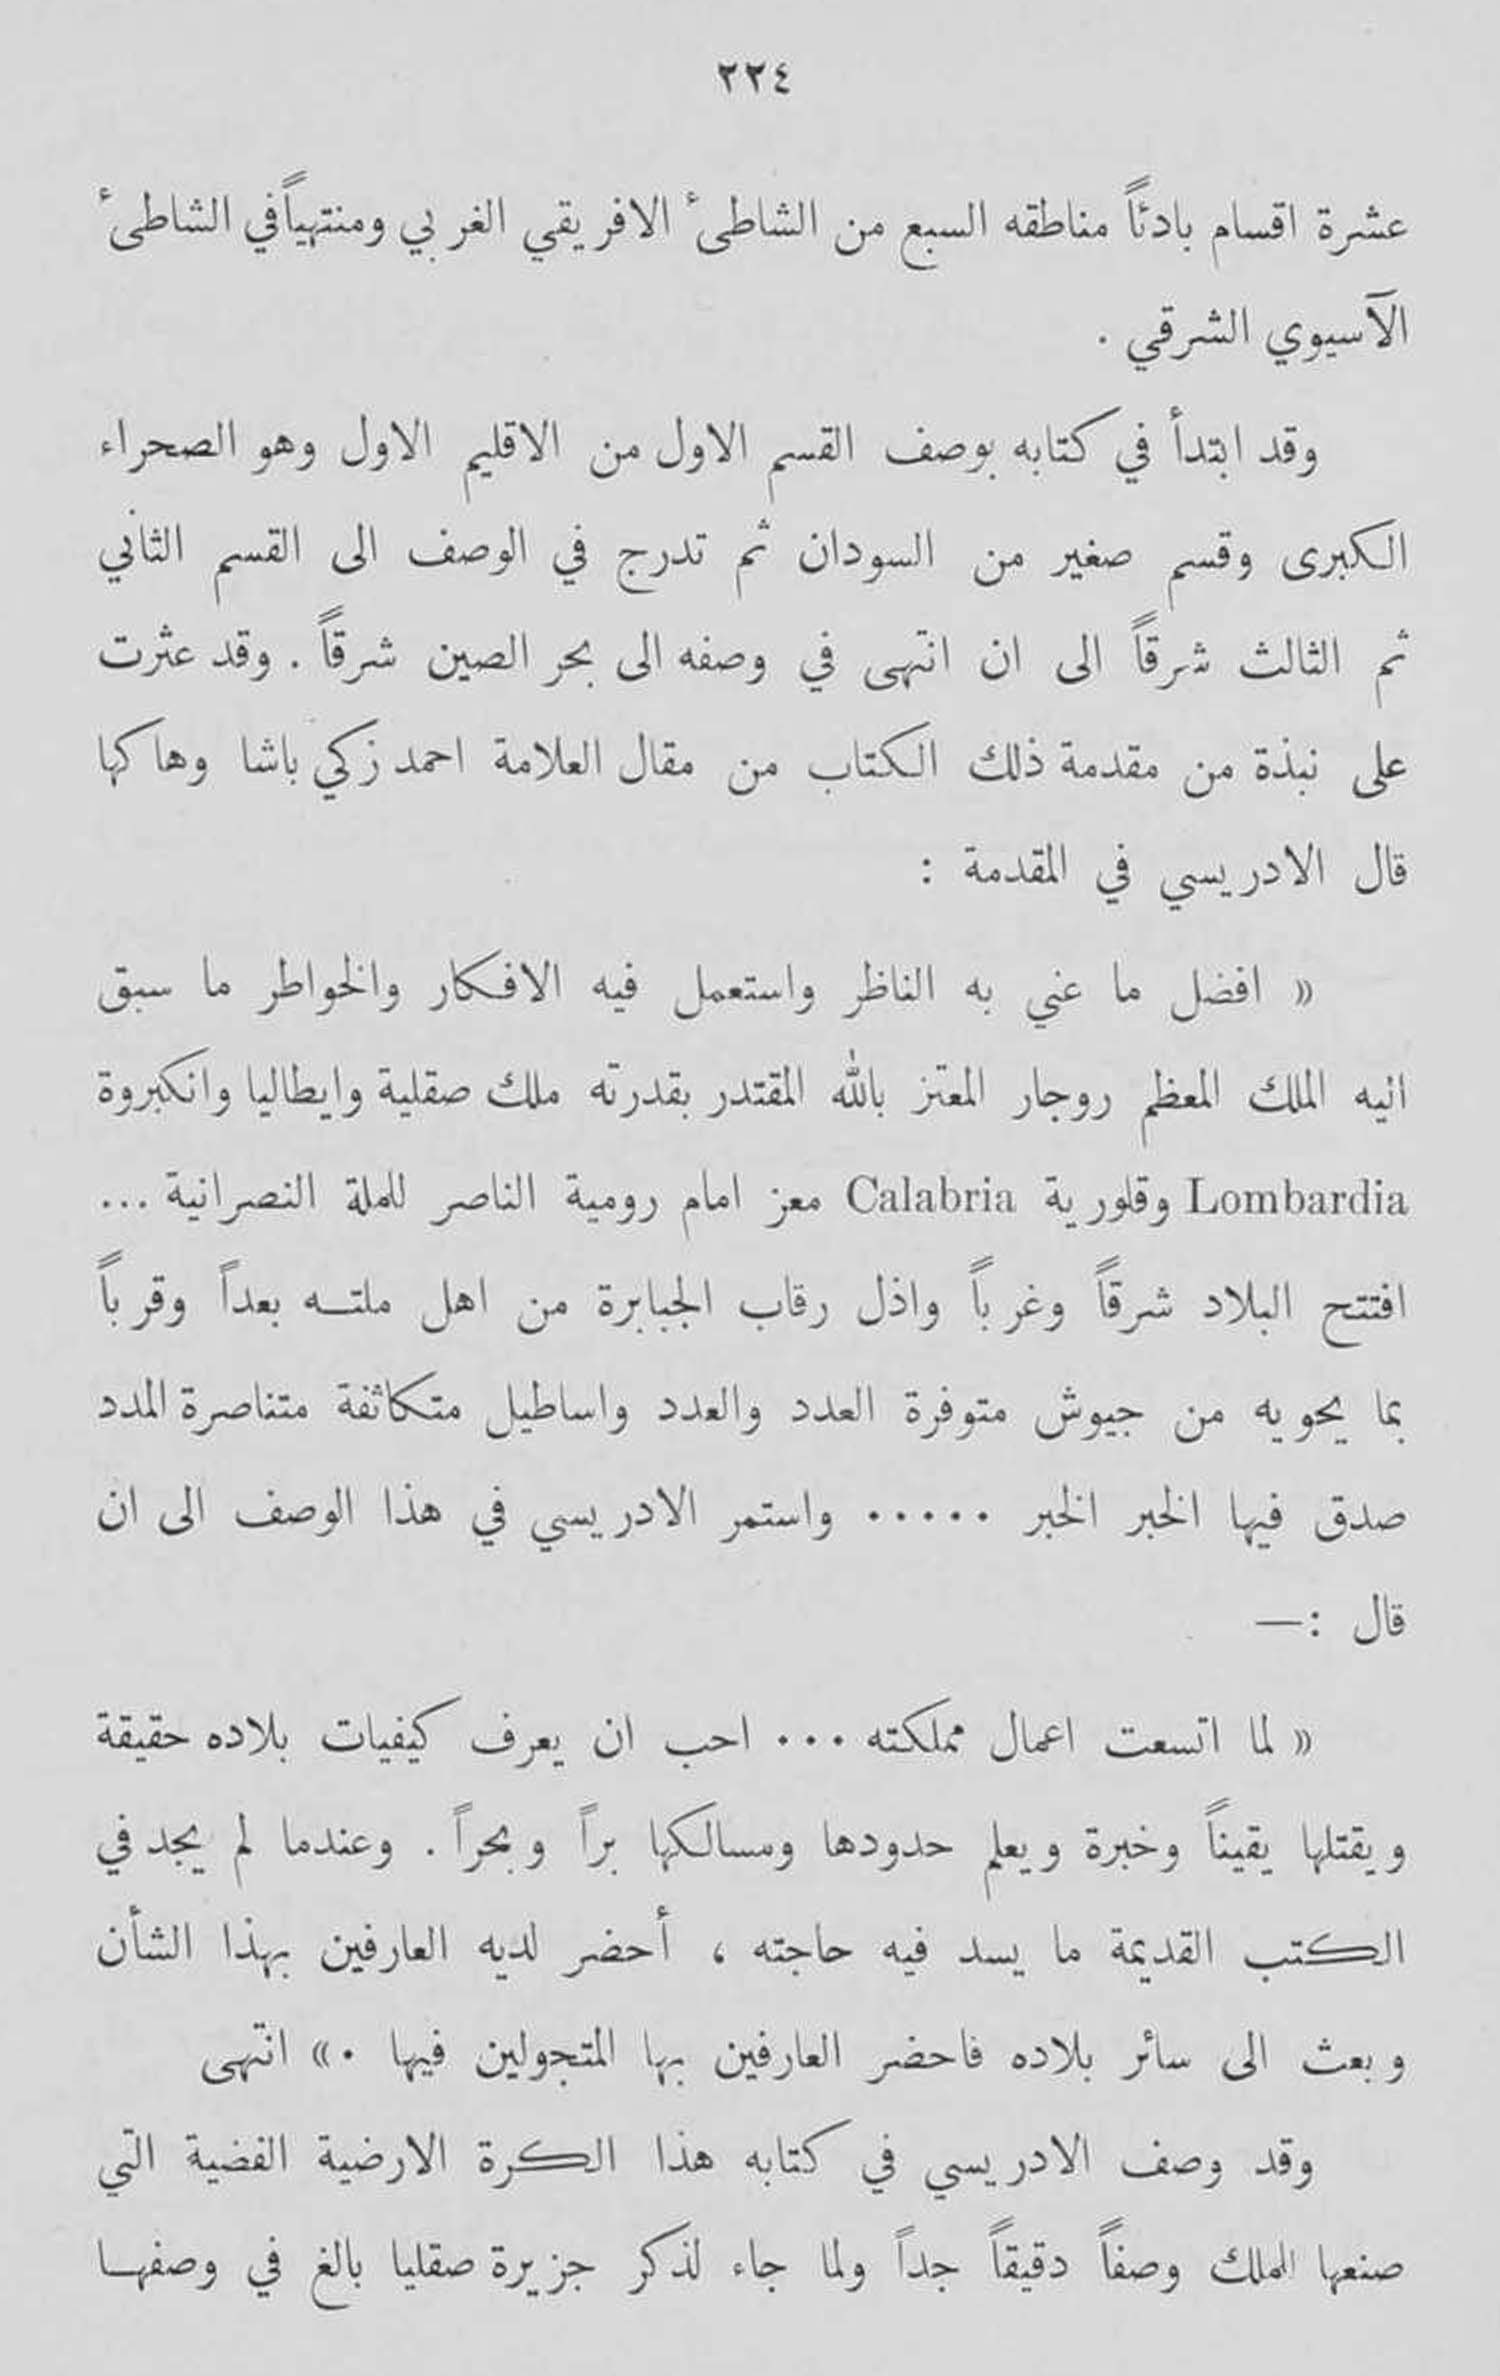 ٢٢٤
عشرة اقسام بادئاً مناطقه السبع من الشاطىء الافريقي الغربي ومنتهياً في الشاطىء
الآسيوي الشرقي .
وقد ابتدأ في كتابه بوصف القسم الاول من الاقليم الاول وهو الصحراء
الكبرى وقسم صغير من السودان ثم تدرج في الوصف الى القسم الثاني
ثم الثالث شرقاً الى ان انتهى في وصفه الى بحر الصين شرقاً . وقد عثرت
على نبذة من مقدمة ذلك الكتاب من مقال العلامة احمد زكي باشا وهاكها
قال الادريسي في المقدمة :
« افضل ما عني به الناظر واستعمل فيه الافكار والخواطر ما سبق
اليه الملك المعظم روجار المعتز بالله المقتدر بقدرته ملك صقلية وايطاليا وانكبروة
Lombardia وقلورية Calabria معز امام رومية الناصر للملة النصرانية ...
افتتح البلاد شرقاً وغرباً واذل رقاب الجبابرة من اهل ملته بعداً وقرباً
بما يحويه من جيوش متوفرة العدد والعدد واساطيل متكاثفة متناصرة المدد
صدق فيها الخبر الخبر ..... واستمر الادريسي في هذا الوصف الى ان
قال :—
« لما اتسعت اعمال مملكته ... احب ان يعرف كيفيات بلاده حقيقة
ويقتلها يقيناً وخبرة ويعلم حدودها ومسالكها براً وبحراً . وعندما لم يجد في
الكتب القديمة ما يسد فيه حاجته ، أحضر لديه العارفين بهذا الشأن
وبعث الى سائر بلاده فاحضر العارفين بها المتجولين فيها .» انتهى
وقد وصف الادريسي في كتابه هذا الكرة الارضية الفضية التي
صنعها الملك وصفاً دقيقاً جداً ولما جاء لذكر جزيرة صقليا بالغ في وصفها